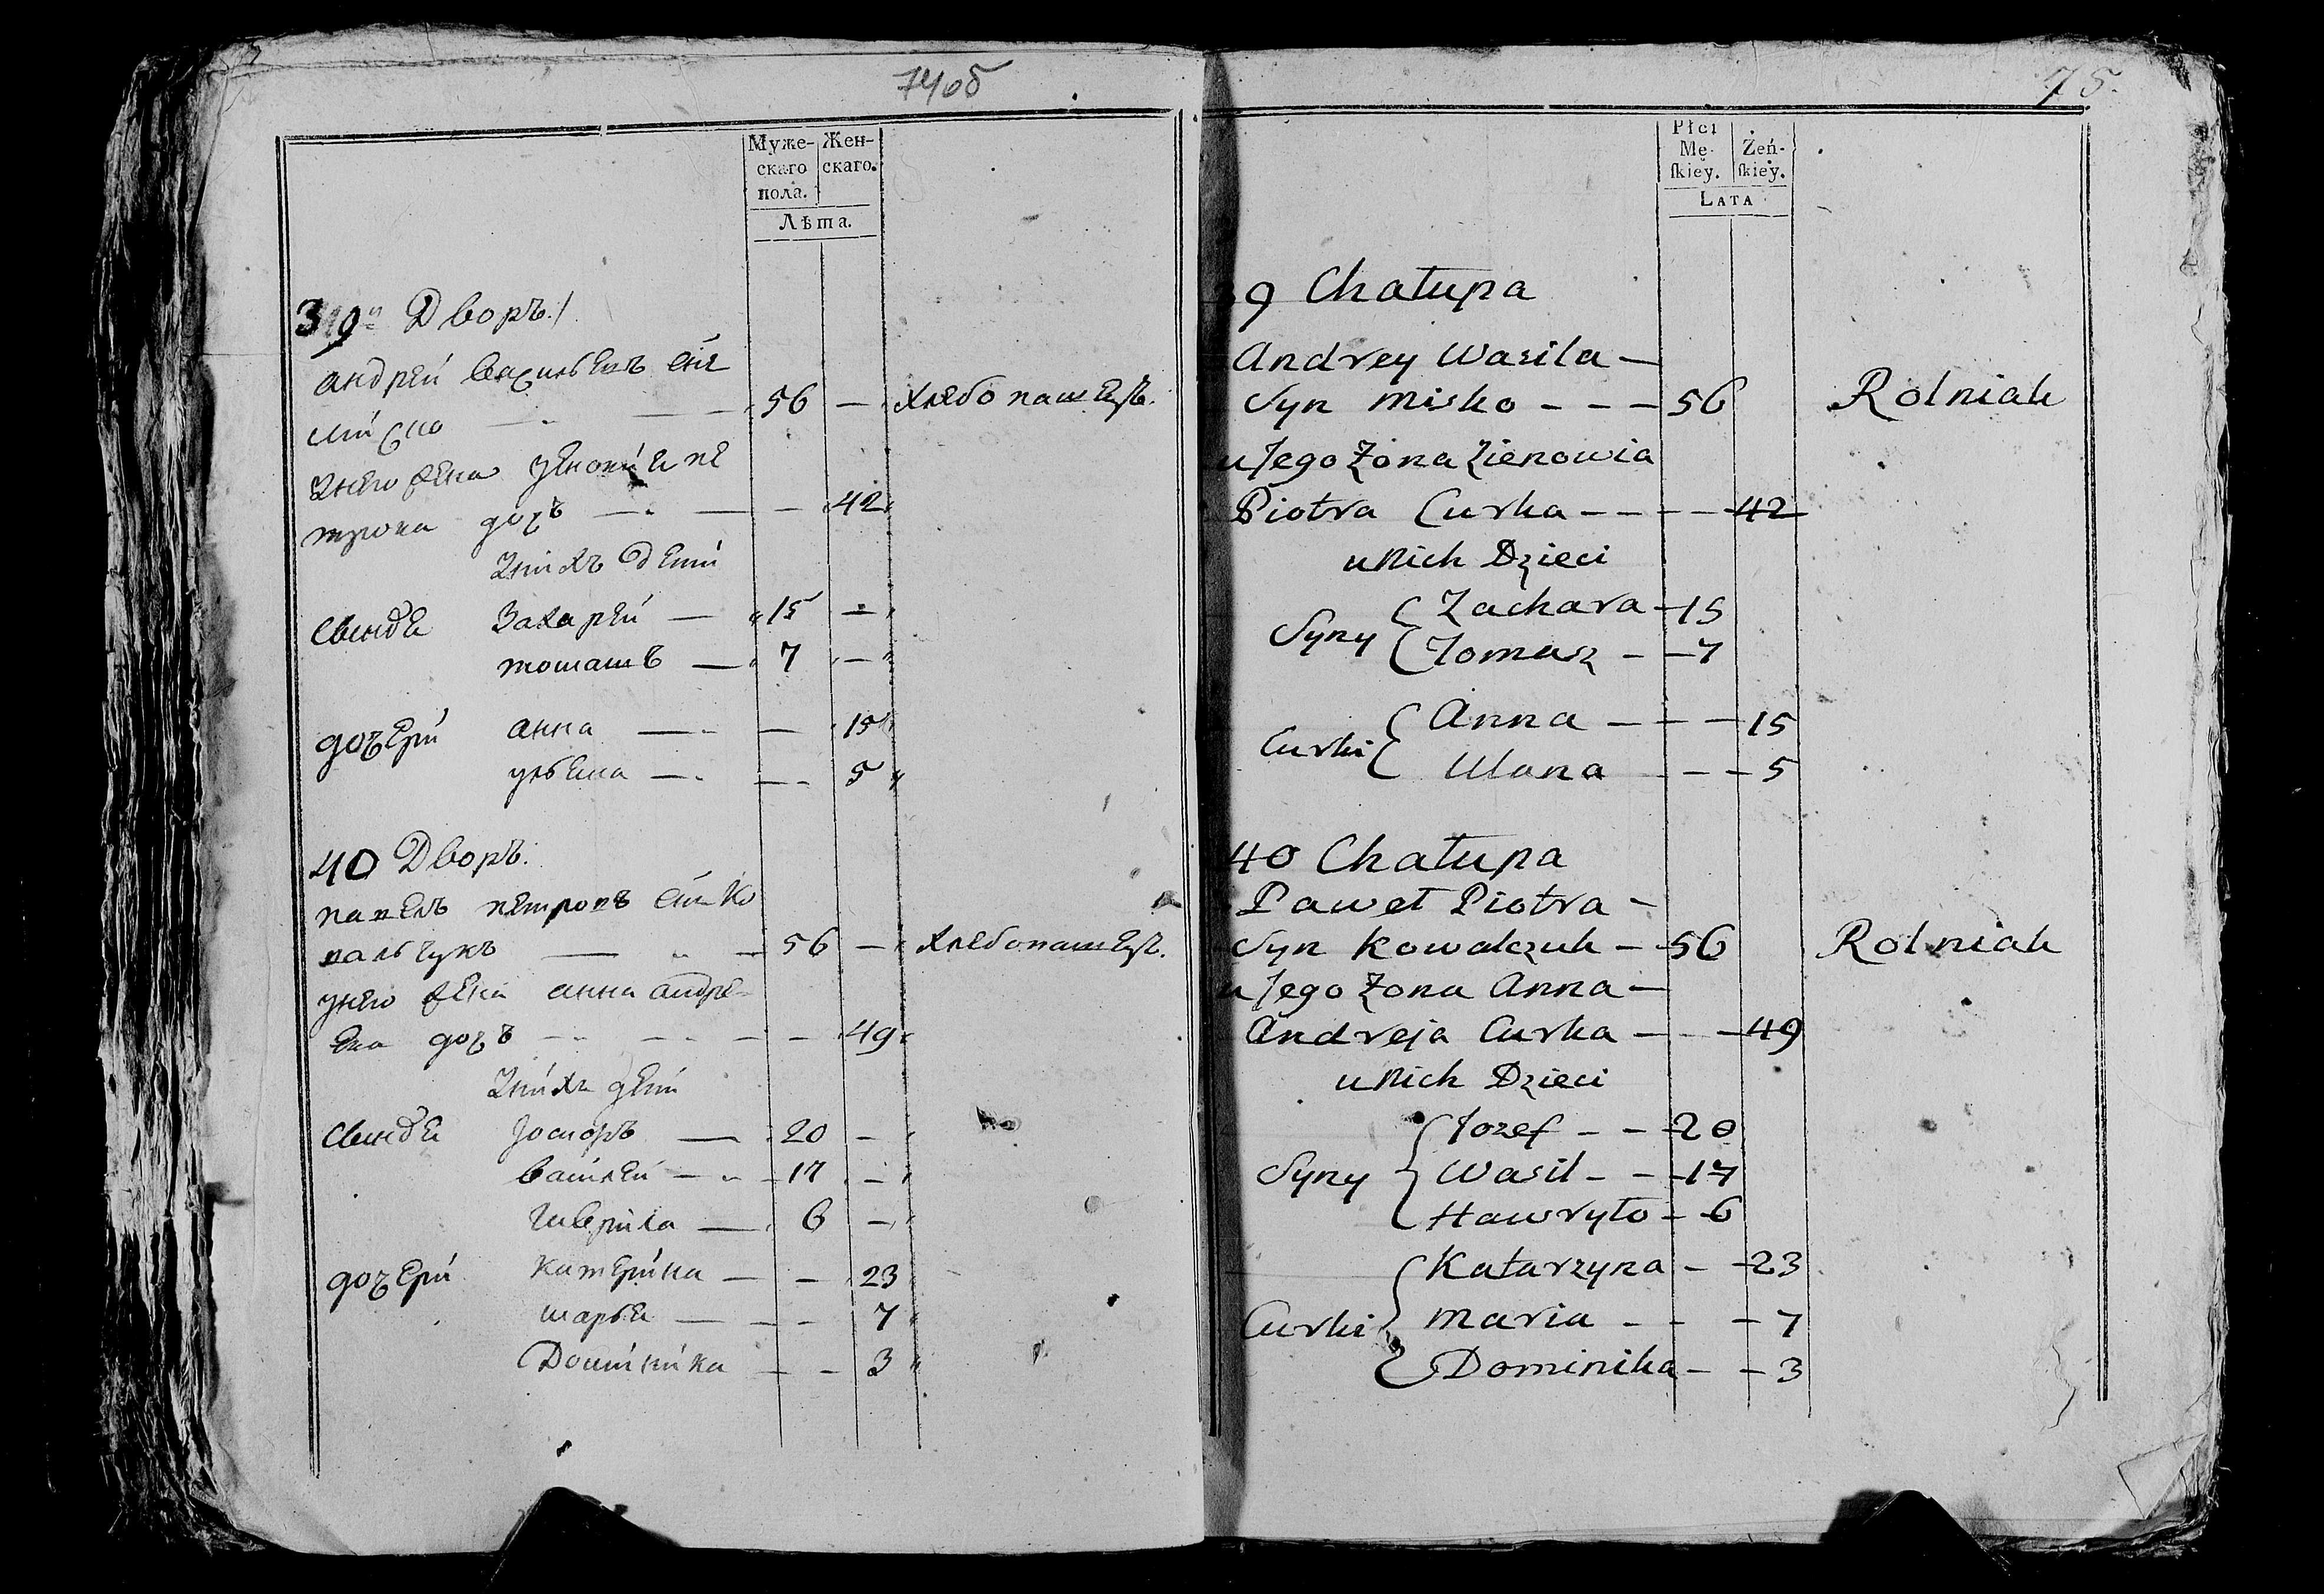 74об
Муже-
скаго
пола.
Жен-
скаго.
Лѣта.
39й Дворъ
андрей васильевъ снъ
миско 56 — хлебопашецъ.
унего жена зеновия пе
трова дочь 42
унихъ дети
сыновья Захарей — 15 —
томашъ — 7 —
дочери анна — — 15
ульяна — — 5
40 Дворъ.
павелъ петровъ снъ Ко
вальчукъ — 56 — хлебопашецъ.
унего жена анна андре-
ева дочь — — 49
унихъ дети
сыновья 20 —
василей — 17 —
гаврила — 6 —
дочери катерина — — 23
марья — — 7
Доминика — — 3
75.
Płci
Mę-
ſkiey.
Żeń-
ſkiey.
Lata
39 Chałupa
Andrey Wasila —
Syn Misko - - - 56 Rolnik
u Jego Żona Zienowia
Piotra Curka - - - - 42
u Nich Dzieci
Syny { Zachara - 15
Tomasz - - 7
Curki { Anna - - - 15
Ulana - - - 5
40 Chałupa
Paweł Piotra -
Syn Kowalczuk - 56 Rolniak
u Jego Żona Anna -
Andreja Curka - - - 49
u Nich Dzieci
Syny { Jozef - - 20
Wasil - - - 17
Hawryło - - 6
Curki { Katarzyna - - 23
Maria - - - 7
Dominika - - 3